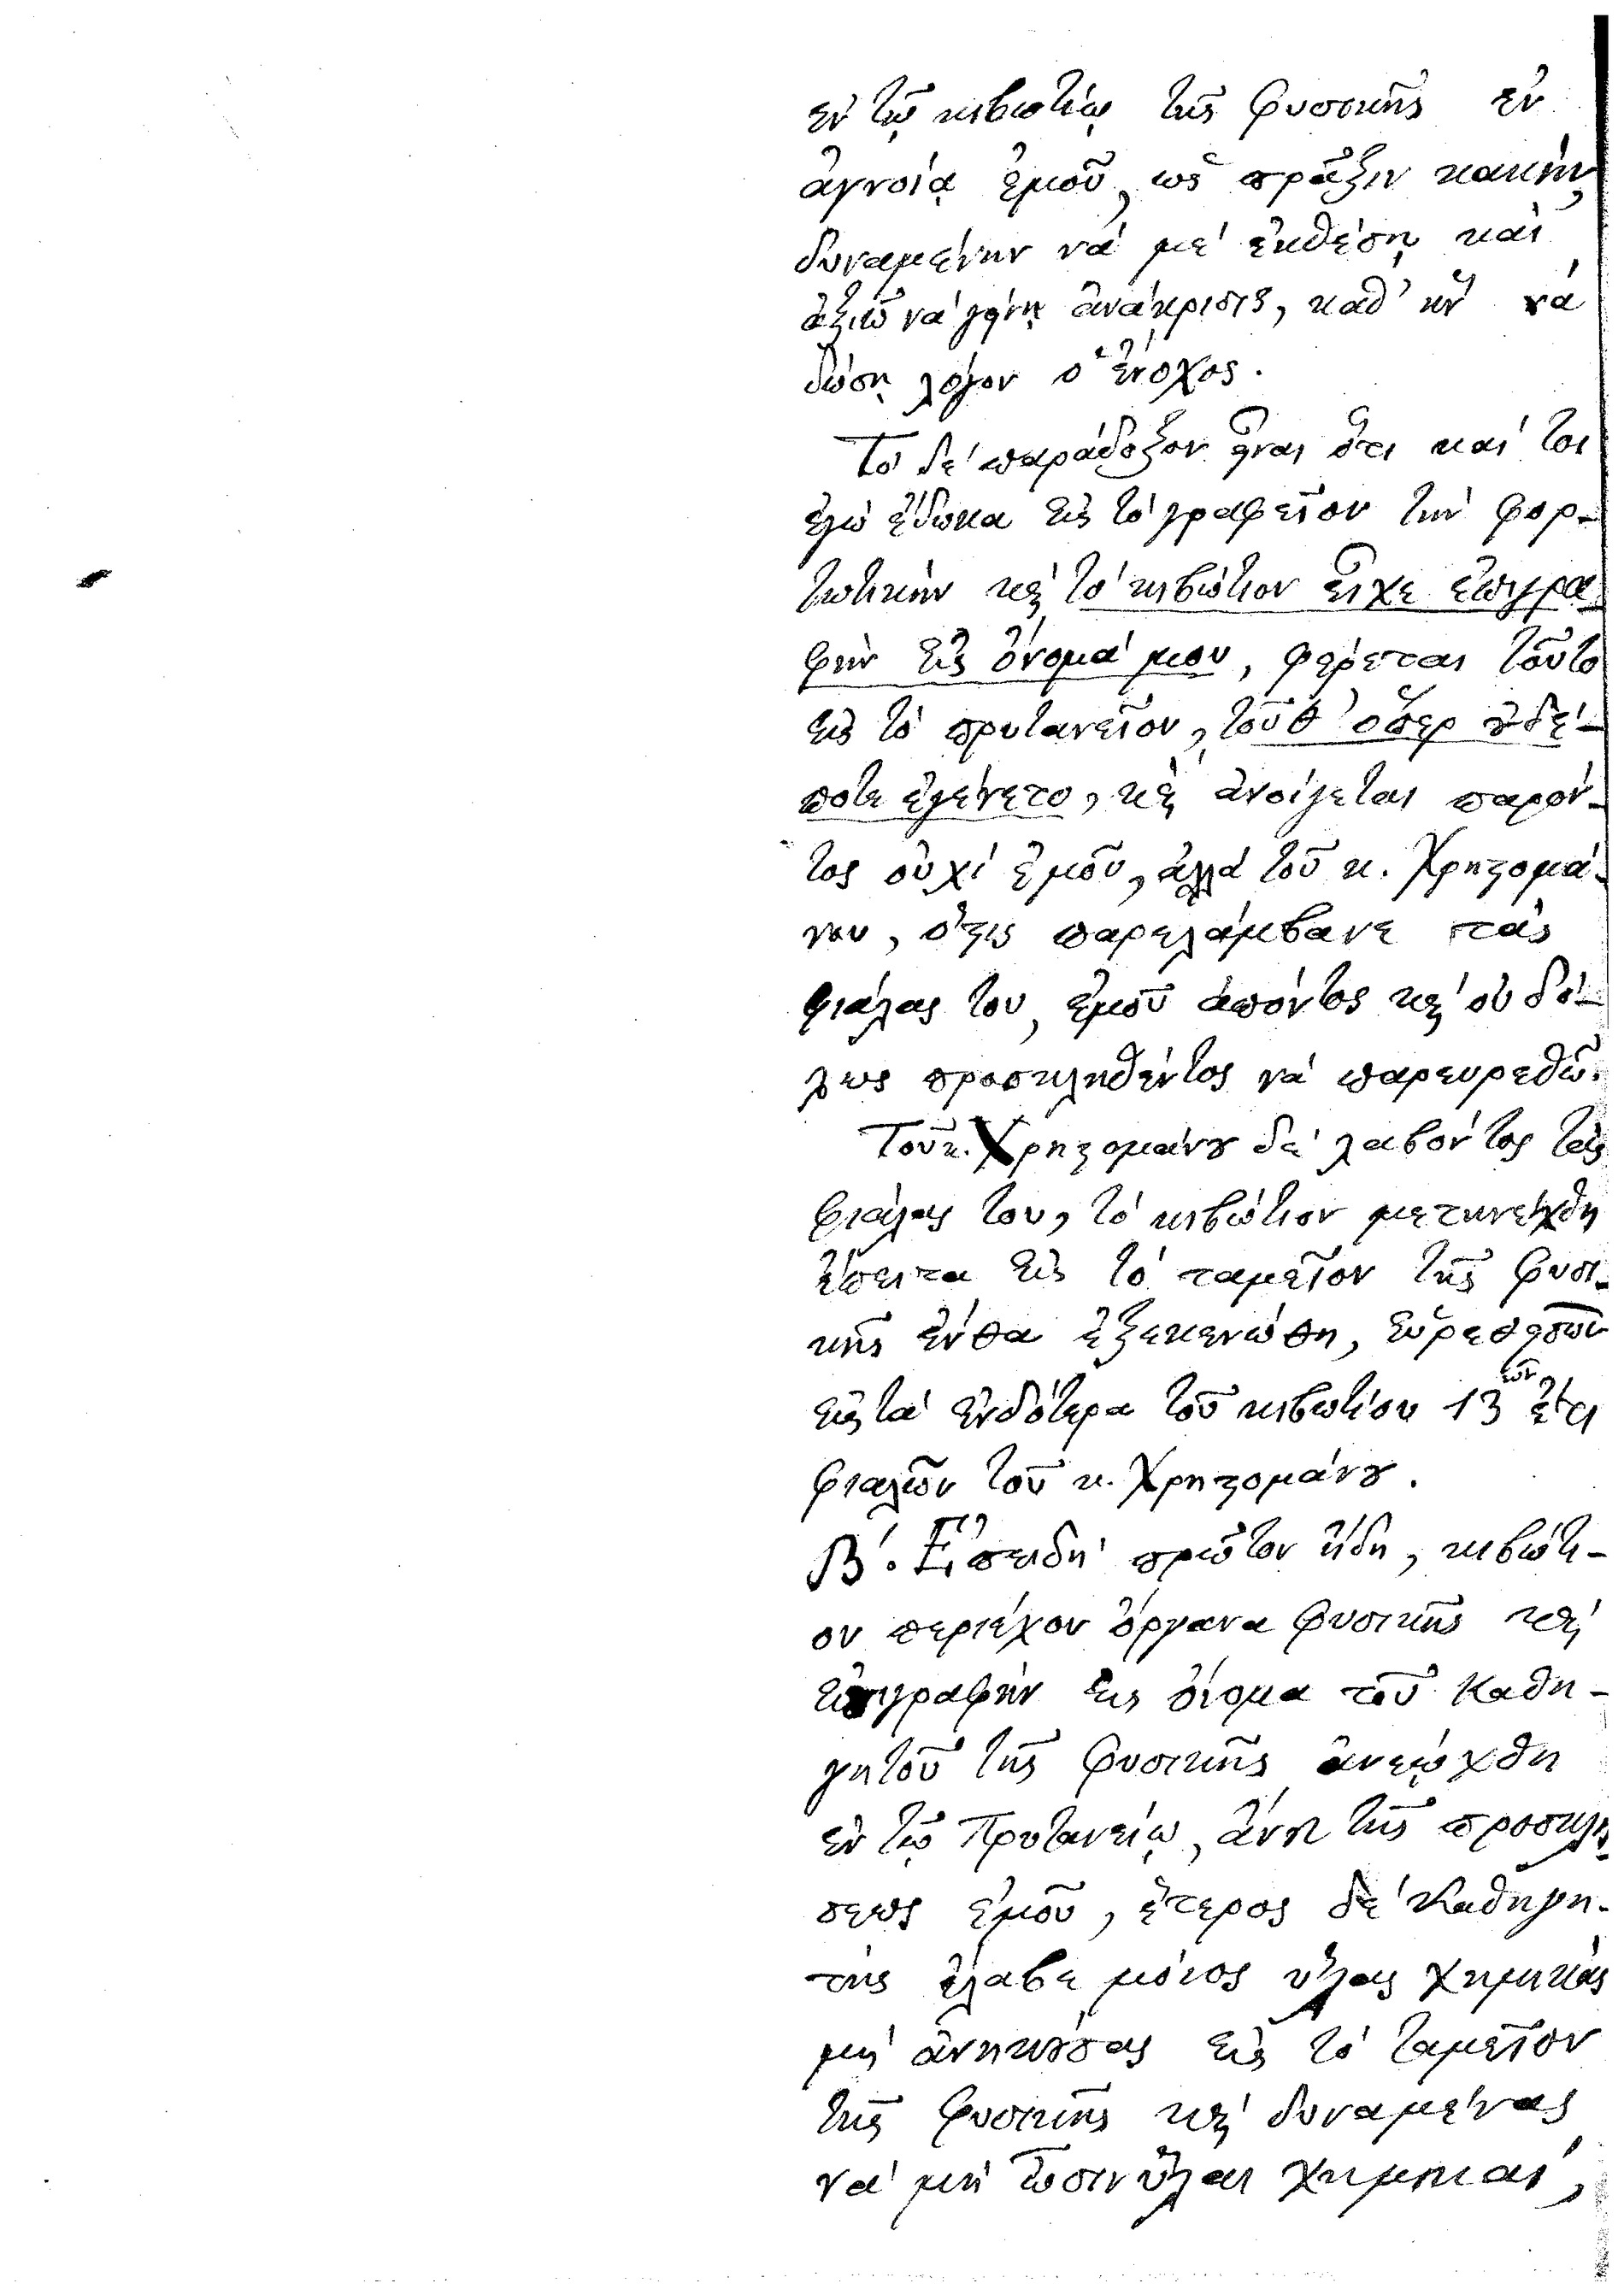 ἐν τῷ κιβωτίῳ τῆς Φυσικῆς ἐν
ἀγνοίᾳ ἐμοῦ, ὡς πρᾶξιν κακήν,
δυναμένην νά μέ ἐκθέσῃ καί
ἀξιῶ νά γίνῃ ἀνάκρισις, καθ' ἥν νά
δώσῃ λόγον ὁ ἔνοχος.
Τό δέ παράδοξον εἶναι ὅτι καί τοι
ἐγώ ἔδωκα εἰς τό γραφεῖον τήν φορ-
τωτικήν κὶ τό κιβώτιον εἶχε ἐπιγρα-
φήν εἰς ὄνομά μου, φέρεται τοῦτο
εἰς τό πρυτανεῖον, τοῦθ' ὅπερ ȣδέ-
ποτε ἐγένετο, κὶ ἀνοίγεται παρόν-
τος οὐχί ἐμοῦ, ἀλλά τοῦ κ. Χρηστομά-
νου, ὅστις παρελάμβανε τάς
φιάλας του, ἐμοῦ ἀπόντος κὶ οὐδό-
λως προσκληθέντος νά παρευρεθῶ.
Τοῦ κ. Χρηστομάνȣ δέ λαβόντος τάς
φιάλας του, τό κιβώτιον μετηνέχθη
ἔπειτα εἰς τό ταμεῖον τῆς Φυσι-
κῆς ἔνθα ἐξεκενώθη, εὑρεθεισῶν
εἰς τά ἐνδότερα τοῦ κιβωτίου 13 ῶν ἔτι
φιαλῶν τοῦ κ. Χρηστομάνȣ.
Β΄. Ἐπειδή πρῶτον ἤδη, κιβώτι-
ον περιέχον ὄργανα Φυσικῆς κὶ
ἐπιγραφήν εἰς ὄνομα τοῦ Καθη-
γητοῦ τῆς Φυσικῆς ἀνεῴχθη
ἐν τῷ Πρυτανείῳ, ἄνευ τῆς προσκλή-
σεως ἐμοῦ, ἕτερος δέ Καθηγη-
τής ἔλαβε μόνος ὕλας χημικάς
μή ἀνηκȣσας εἰς τό ταμεῖον
τῆς Φυσικῆς κὶ δυναμένας
νά μή ὦσιν ὕλαι χημικαί,